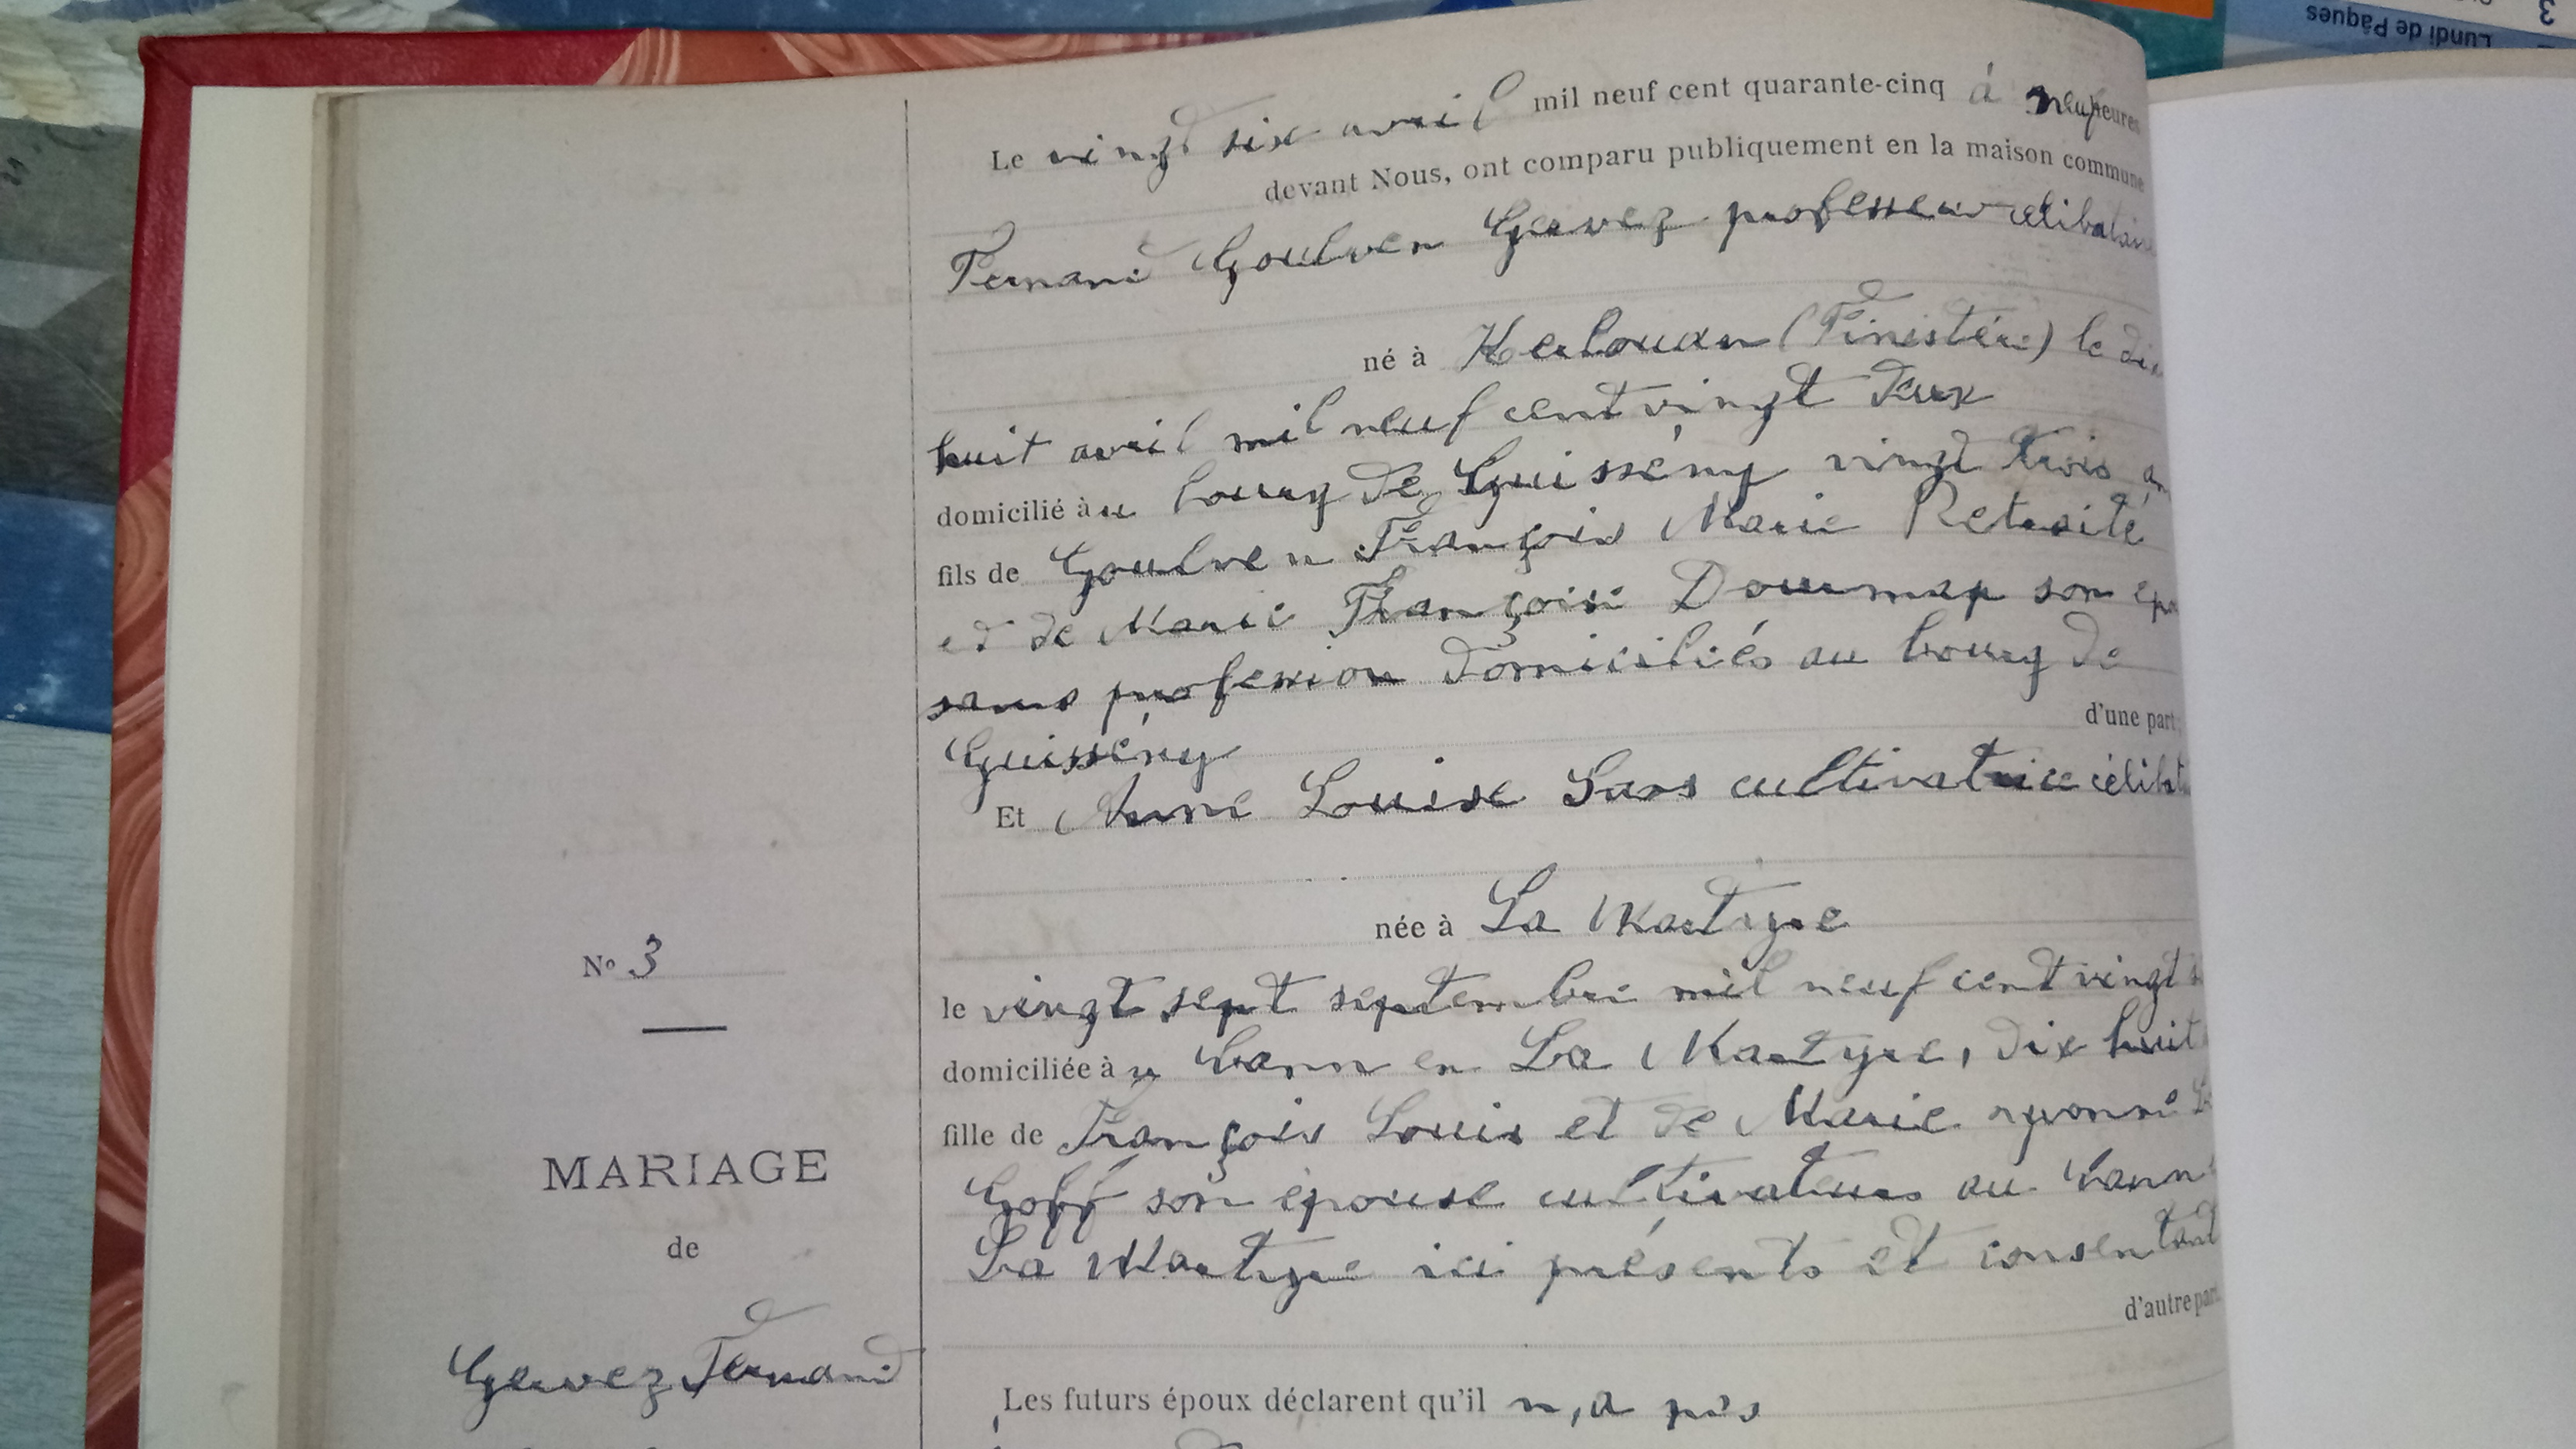 Lundi de Pâques
3
Le vingt six avril mil neuf cent quarante-cinq à neuf heures
devant Nous, ont comparu publiquement en la maison commune
Fernand Goulven Gervez professeur célibataire
né à Kerlouan (Finistère) le dix
huit avril mil neuf cent vingt deux
domicilié à u bourg de Guissény vingt trois an
fils de Goulven François Marie Retraité
et de Marie Françoise Dourmap son épo
sans profession domiciliés au bourg de
Guissény d'une part
Et Anne Louise Sans cultivatrice célibat
née à La Martyre
le vingt sept septembre mil neuf cent vingt s
domiciliée à u Vann en La Martyre, dix huit
fille de François Louis et de Marie yvonne Le
Goff son épouse cultivateurs au Vann
La Martyre ici présents et consentant
d'autre part
Les futurs époux déclarent qu'il n,a pas
N° 3
MARIAGE
de
Gervez Fernand